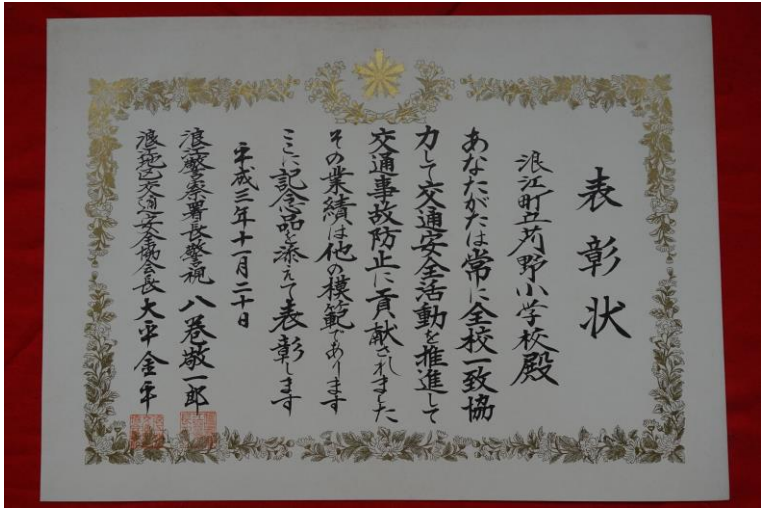 表彰状
浪江町立苅野小学校殿
あなたがたは常に全校一致協
力して交通安全活動を推進して
交通事故防止に貢献されました
その業績は他の模範であります
ここに記念品を添えて表彰します
平成三年十一月二十日
浪江警察署長警視 八巻敬一郎
浪江地区交通安全協会長 大平金平